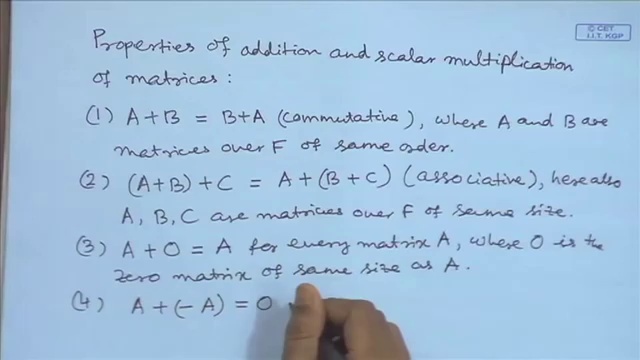 © CET
I.I.T. KGP
Properties of addition and scalar multiplication
of matrices :
(1) A+B = B+A (commutative), where A and B are
matrices over F of same order.
(2) (A+B)+C = A+(B+C) (associative), here also
A, B, C are matrices over F of same size.
(3) A + O = A for every matrix A, where O is the
zero matrix of same size as A.
(4) A + (-A) = O